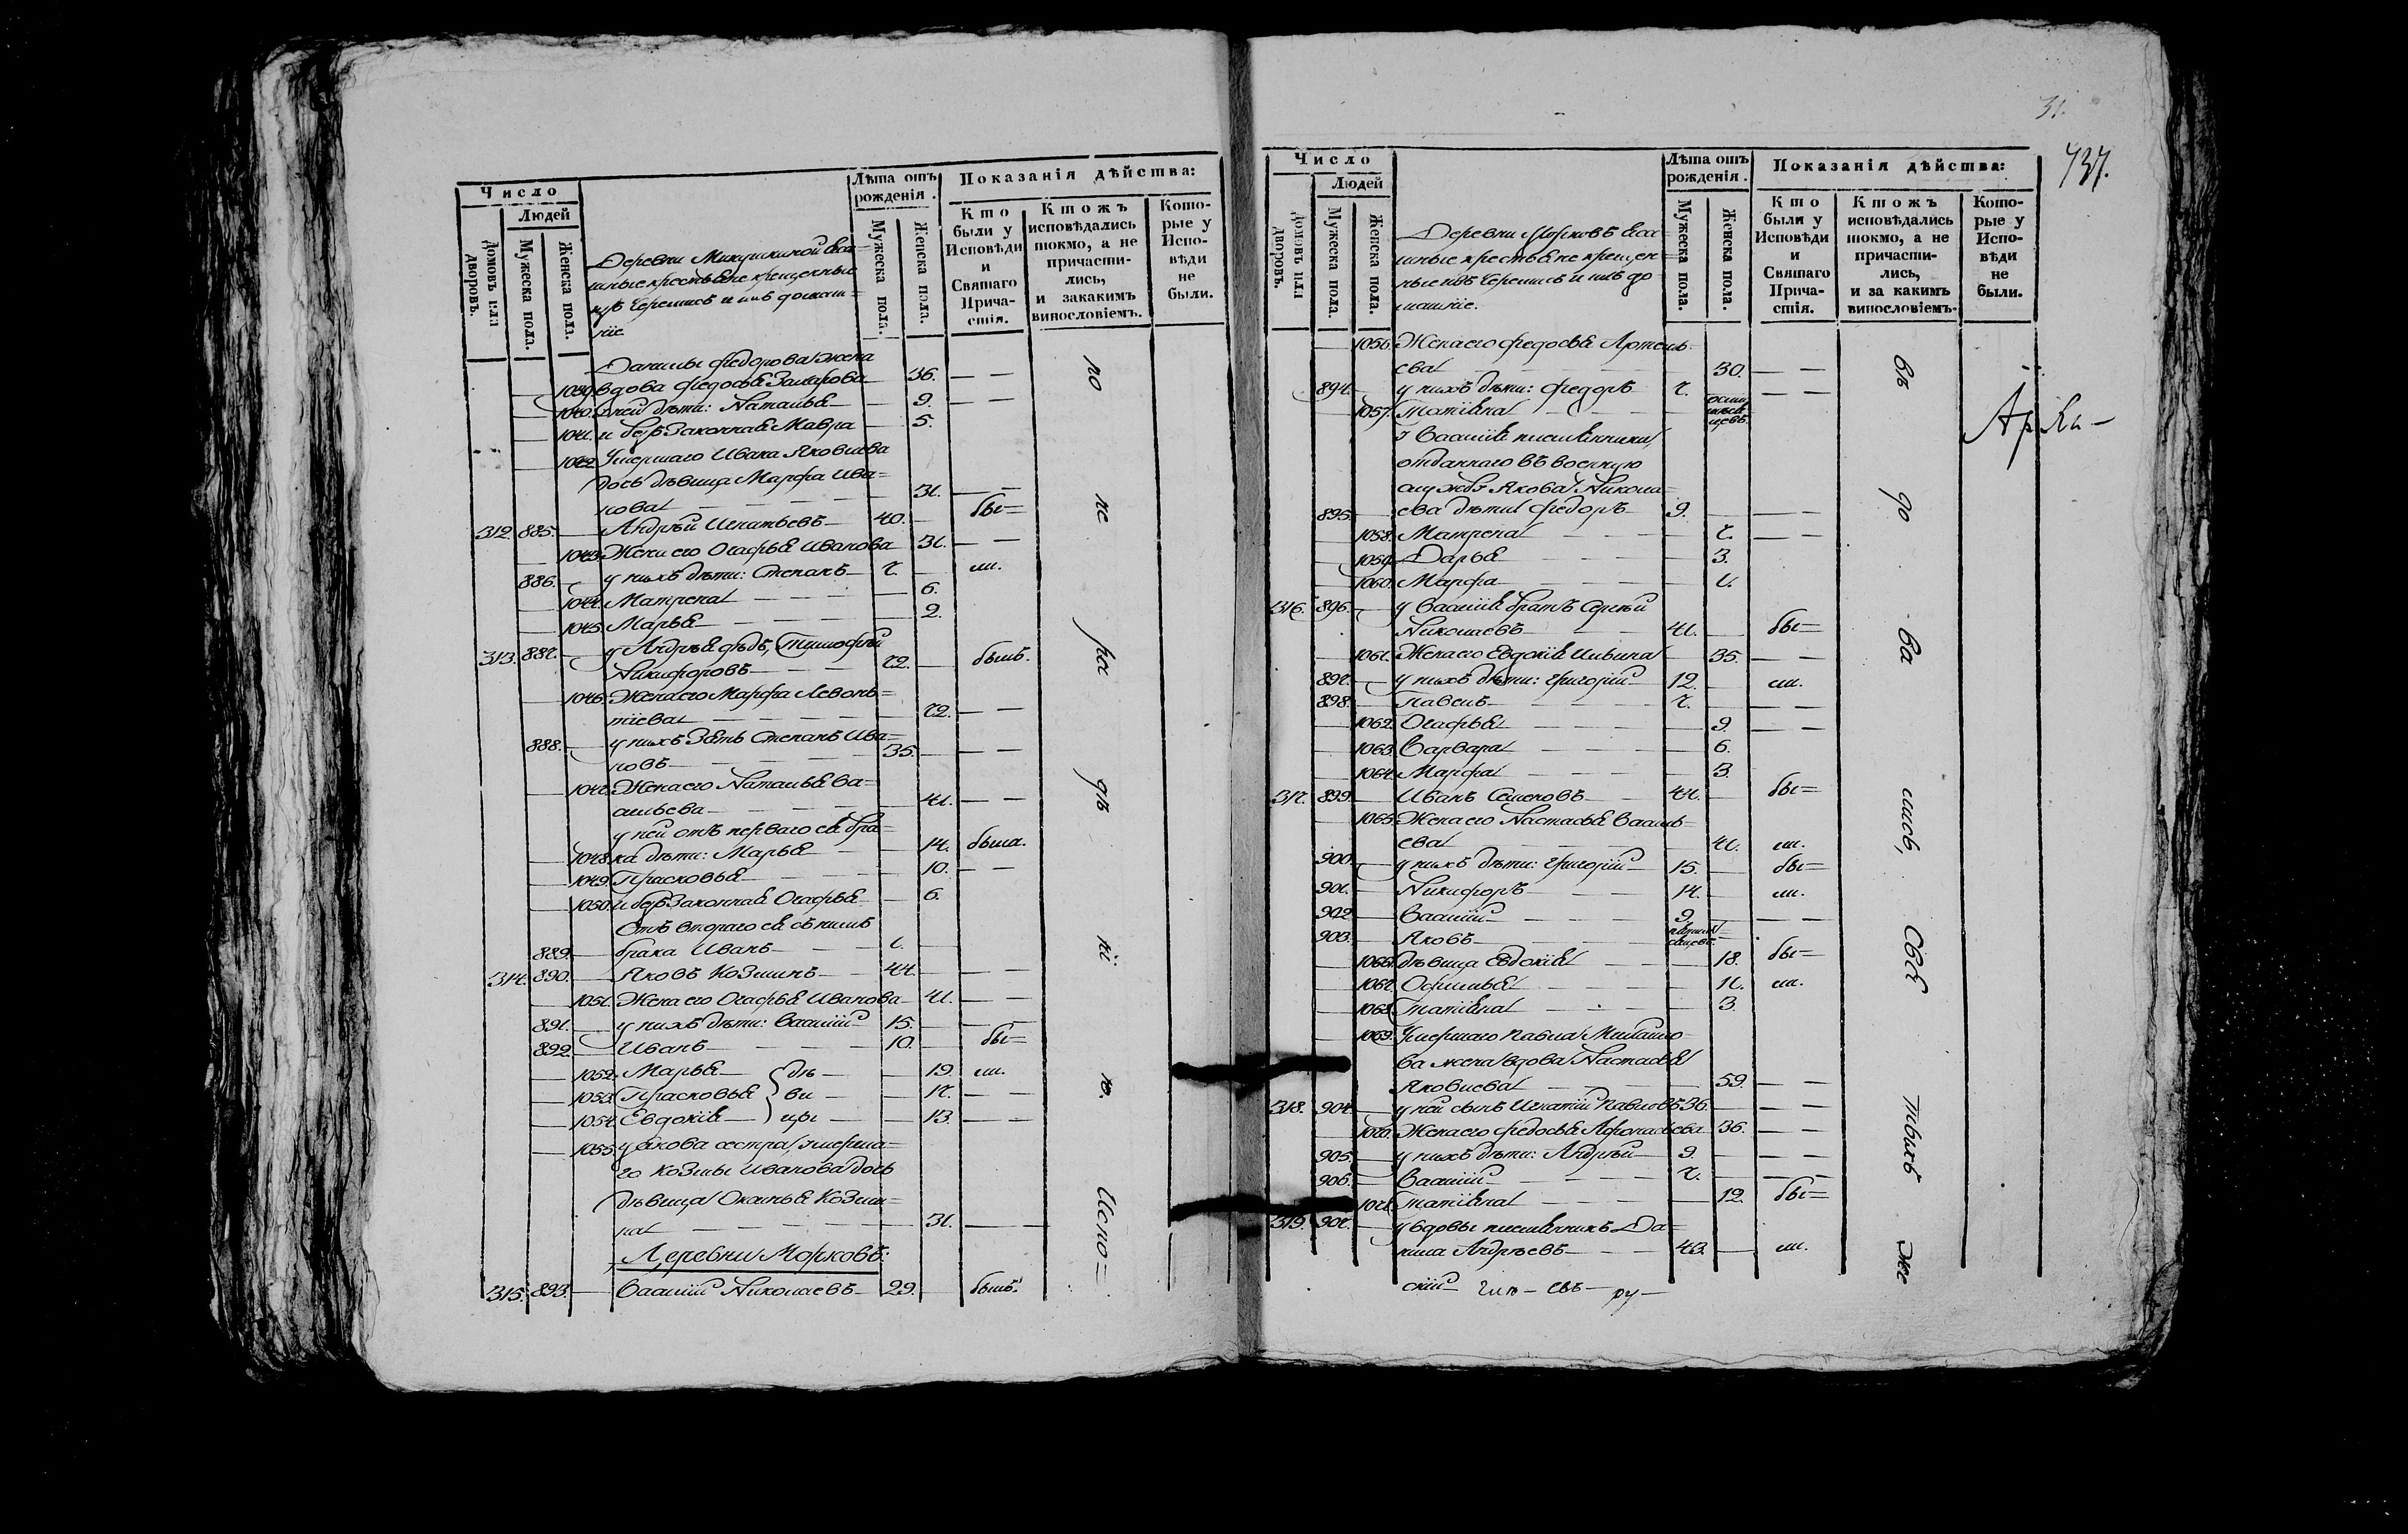 Число
Людей
Домовъ или дворовъ.
Мужеска пола.
Женска пола.
Деревни Микушкиной яса=
шные крестьяне крещенные
изъ Черемисъ и ихъ домаш=
ніе
Лѣта отъ рожденія.
Мужеска пола.
Женска пола.
Показанія дѣйства:
Кто были у Исповѣди и Святаго Причастія.
Ктожъ исповѣдались токмо, а не причастились, и закакимъ винословіемъ.
Которые у Исповѣди не были.
Данилы Федорова жена
1039. вдова Федосья Захарова 36.
1040. у ней дѣти: Наталья 9.
1041. и беззаконная Мавра 5.
1042. Умершаго Ивана Яковлева
дочь дѣвица Марфа Ива=
нова 31.
312. 885. Андрей Игнатьевъ 40. бы=
1043. Жена его Огафья Иванова 31.
886. у нихъ дѣти: Степанъ 7. ли.
1044. Матрена 6.
1045. Марья 2.
313. 887. у Андрея дѣдъ, Тимофей
Никифоровъ 72. былъ.
1046. Жена его Марфа Левонь=
тіева 72.
888. у нихъ Зять Степанъ Ива=
новъ 35.
1047. Жена его Наталья Ва=
сильева 41.
у ней отъ перваго ея бра=
1048. ка дѣти: Марья 14. была.
1049. Прасковья 10.
1050. и беззаконная Огафья 6.
Отъ втораго ея съ нимъ
889. брака Иванъ 1.
314. 890. Яковъ Козминъ 44.
1051. Жена его Огафья Иванова 41.
891. у нихъ дѣти: Василій 15.
892. Иванъ 10. бы=
1052. Марья дѣ 19. ли.
1053. Прасковья ви 17.
1054. Евдокія цы 13.
1055. у Якова сестра, умерша=
го Козмы Иванова дочь
дѣвица Окилина Козми=
на 31.
Деревни Морковъ:
315. 893. Василій Николаевъ 29. былъ.
по не рас дѣ ні ю. Испо=
31.
737.
Число
Людей
Домовъ или дворовъ.
Мужеска пола.
Женска пола.
Деревни Морковъ яса=
шные крестьяне крещен=
ные изъ Черемисъ и ихъ до
машніе.
Лѣта отъ рожденія.
Мужеска пола.
Женска пола.
Показанія дѣйства:
Кто были у Исповѣди и Святаго Причастія.
Ктожъ исповѣдались токмо, а не причастились, и за какимъ винословіемъ.
Которые у Исповѣди не были.
1056. Жена его Федосья Артемь=
ева 30.
894. у нихъ дѣти: Федоръ 7.
1057. Татіяна
у Василія племянники,
отданнаго въ военную
службу Якова Никола=
895. ева дѣти Федоръ 9.
1058. Матрена 7.
1059. Дарья 3.
1060. Марфа 1.
316. 896. у Василія братъ Сергѣй
Николаевъ 41. бы=
1061. Жена его Евдокія Ильина 35.
897. у нихъ дѣти: Григорій 12. ли.
898. Павелъ 7.
1062. Огафья 9.
1063. Варвара 6.
1064. Марфа 3.
317. 899. Иванъ Семеновъ 44. бы=
1065. Жена его Настасья Василь=
ева 41. ли.
900. у нихъ дѣти: Григорій 15. бы=
901. Никифоръ 14. ли.
902. Василій 9.
903. Яковъ
1066. дѣвица Евдокія 18. бы=
1067. Офимья 11. ли.
1068. Татіяна 3.
1069. Умершаго Павла Михайло
ва жена вдова Настасья
Яковлева 59.
318. 904. у ней сынъ Игнатій Павловъ 36.
1070. Жена его Федосья Афонасьева 36.
905. у нихъ дѣти: Андрей 9.
906. Василій 7.
1071. Татіяна 12. бы=
319. 907. у вдовы племянникъ Да=
нила Андреевъ 43. ли.